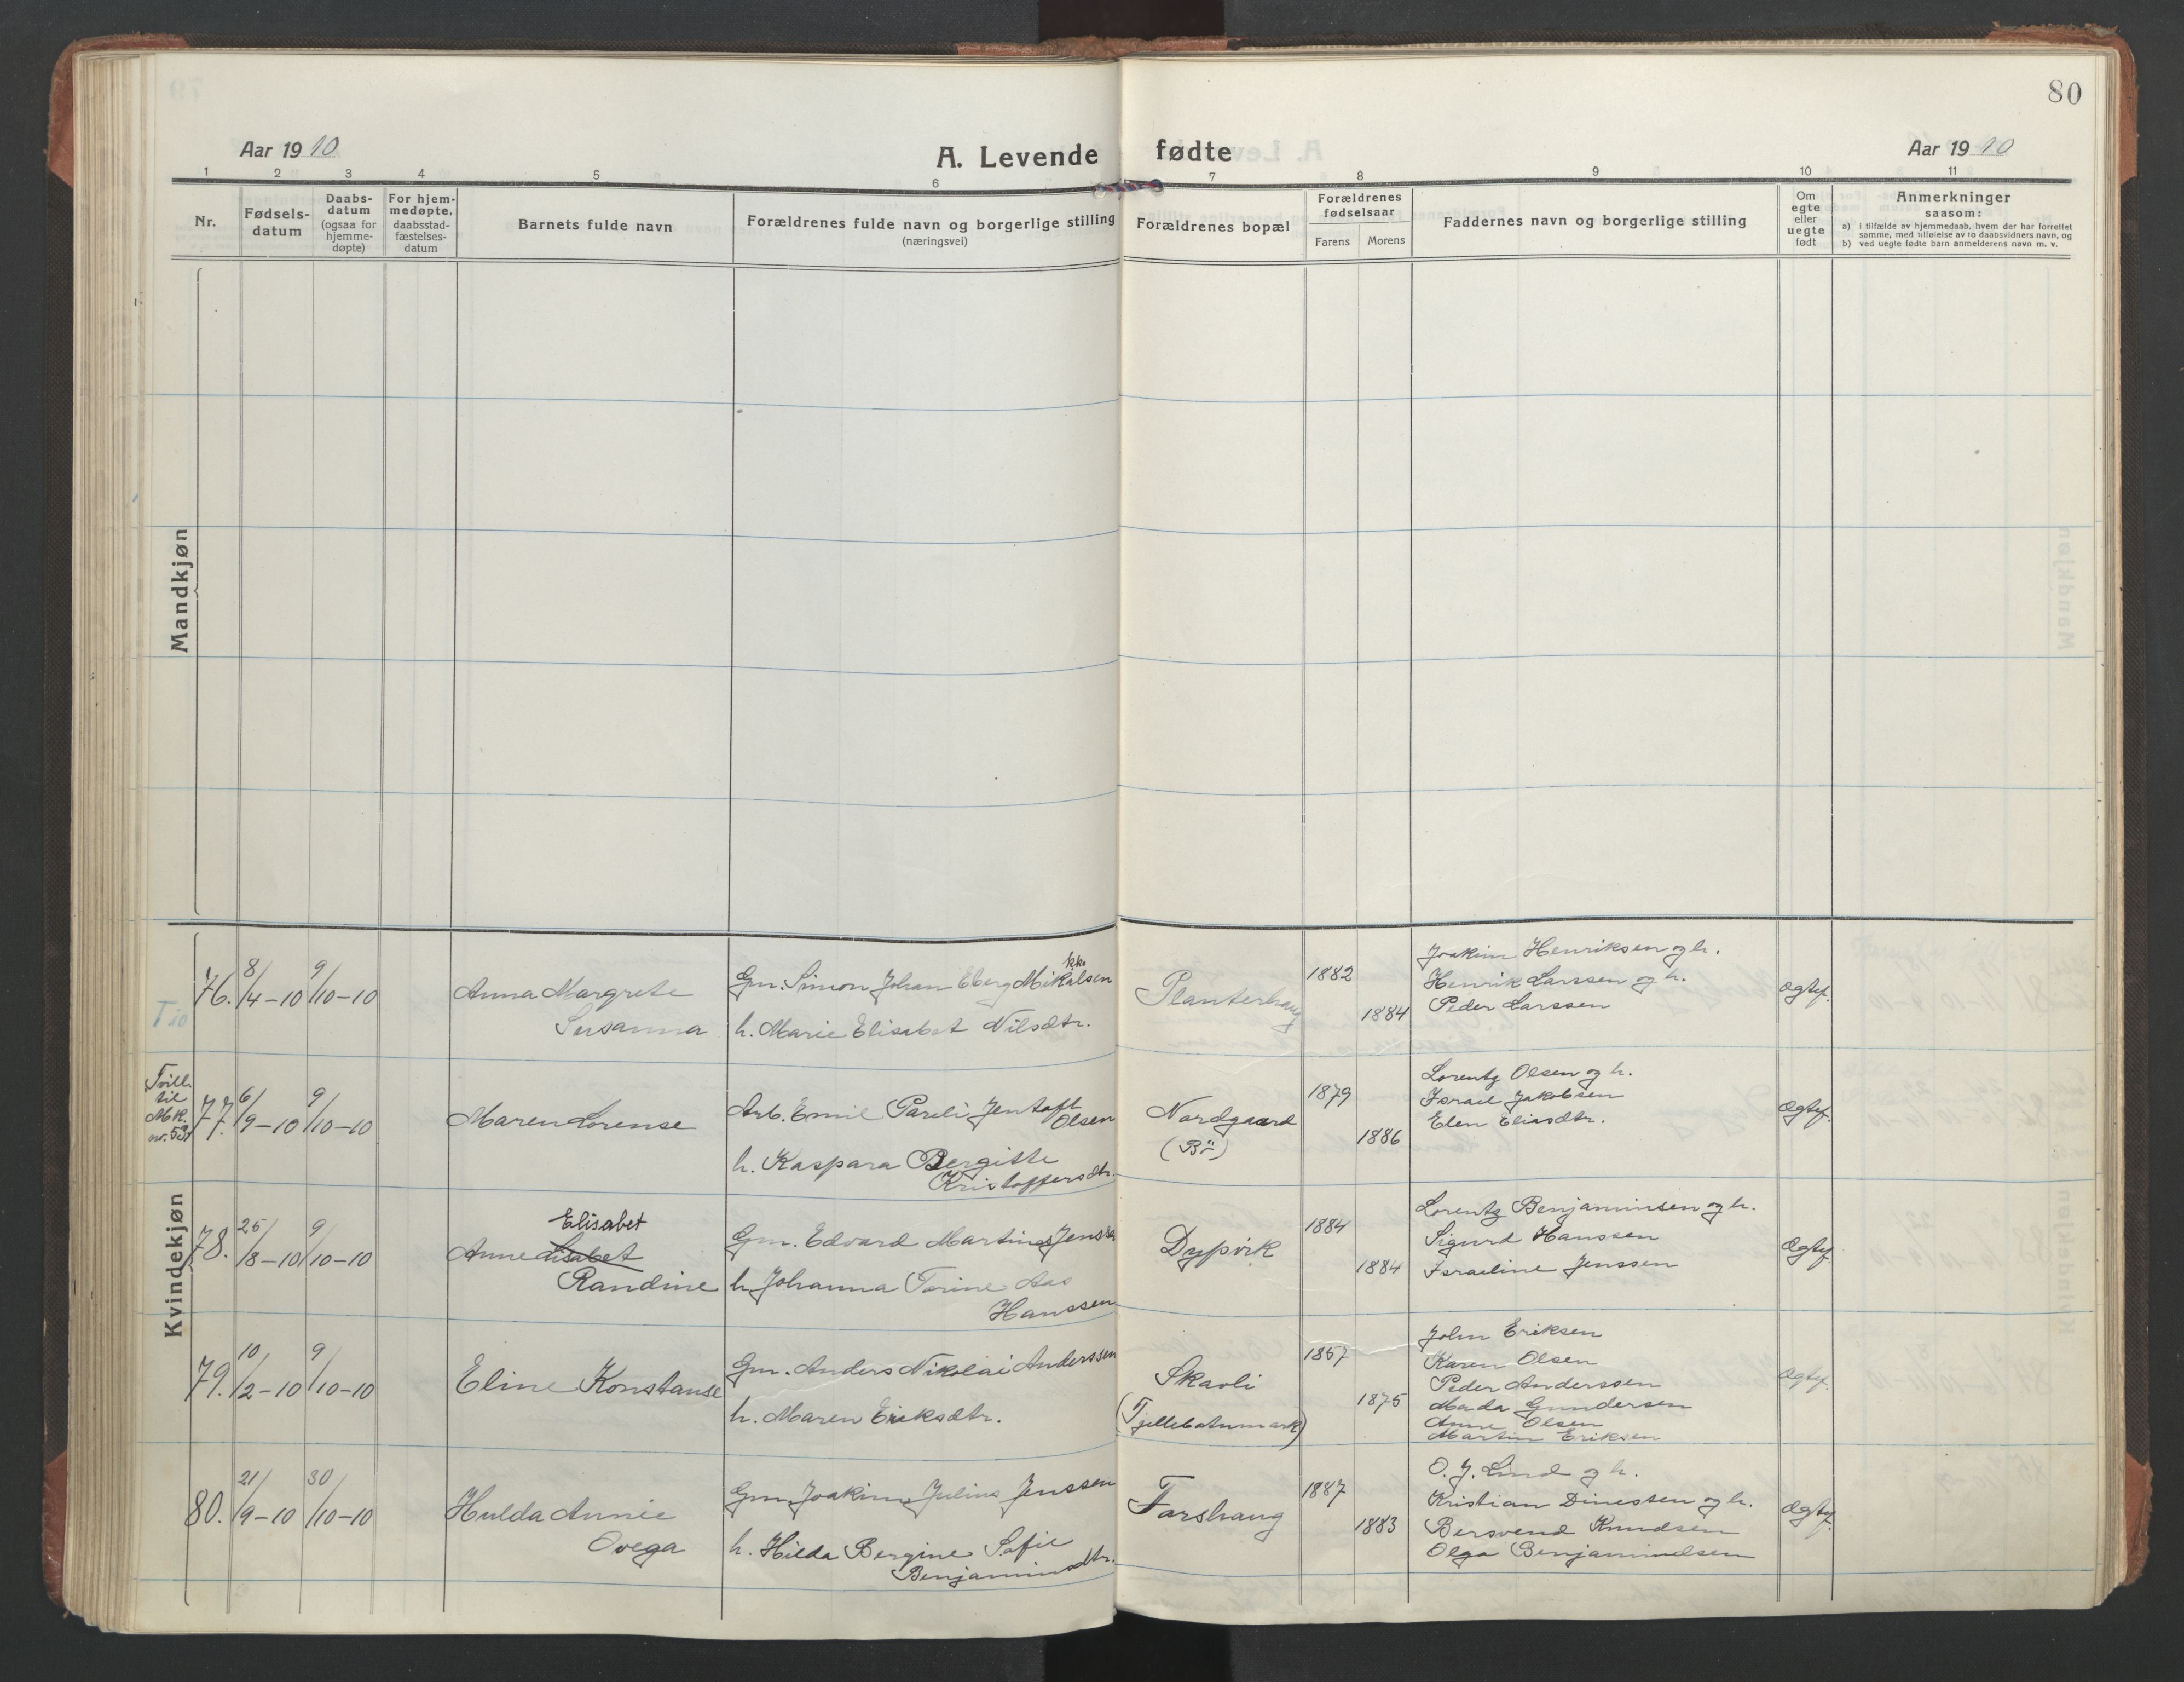 80
Aar 1910
A. Levende fødte
Aar 1910
1 2 3 4 5 6 7 8 9 10 11
Nr.
Fødsels-
datum
Daabs-
datum
(ogsaa for
hjemme-
døpte)
For hjem-
medøpte,
daabsstad-
fæstelses-
datum
Barnets fulde navn
Forældrenes fulde navn og borgerlige stilling
(næringsvei)
Forældrenes bopæl
Forældrenes
fødselsaar
Farens Morens
Faddernes navn og borgerlige stilling
Om
egte
eller
uegte
født
Anmerkninger
saasom:
a) i tilfælde av hjemmedaab, hvem der har forrettet
samme, med tilføielse av to daabsvidners navn, og
b) ved uegte fødte barn anmelderens navn m. v.
Mandkjøn
Kvindekjøn
76. 8/4-10 9/10-10
Anna Margrete
Susanna
kk
Gm. Simon Johan Eberg Mikalsen
h. Marie Elisabet Nilsdtr.
Planterhaug
1882
1884
Joakim Henriksen og h.
Henrik Larssen og h.
Peder Larssen
Ægtef.
Tvill.
til
Mk.
nr. 53
77. 6/9-10 9/10-10
Maren Lorense
Arb. Emil Pareli Jentoft
Olsen
h. Kaspara Bergitte
Kristoffersdtr.
Nordgaard
(Bö)
1879
1886
Lorentz Olsen og h.
Israel Jakobsen
Elen Eliasdtr.
Ægtef.
78. 25/8-10 9/10-10
Elisabet
Anne Lisabet
Randine
Gm. Edvard Martines Jenssen
h. Johanna Torine Aas
Hanssen
Dypvik
1884
1884
Lorentz Benjaminsen og h.
Sigurd Hanssen
Israeline Jenssen
Ægtef.
79. 10/2-10 9/10-10
Eline Konstanse
Gm. Anders Nikolai Anderssen
h. Maren Eriksdtr.
Skavli
(Tjellebotnmark)
1867
1875
John Eriksen
Karen Olsen
Peder Anderssen
Mada Gundersen
Anne Olsen
Martin Eriksen
Ægtef.
80. 21/9-10 30/10-10
Hulda Annie
Ovega
Gm. Joakim Julius Jenssen
h. Hilda Bergine Sofie
Benjaminsdtr.
Forshaug
1887
1883
O. J. Lind og h.
Kristian Dinessen og h.
Bersvend Knudsen
Olga Benjaminsen
Ægtef.